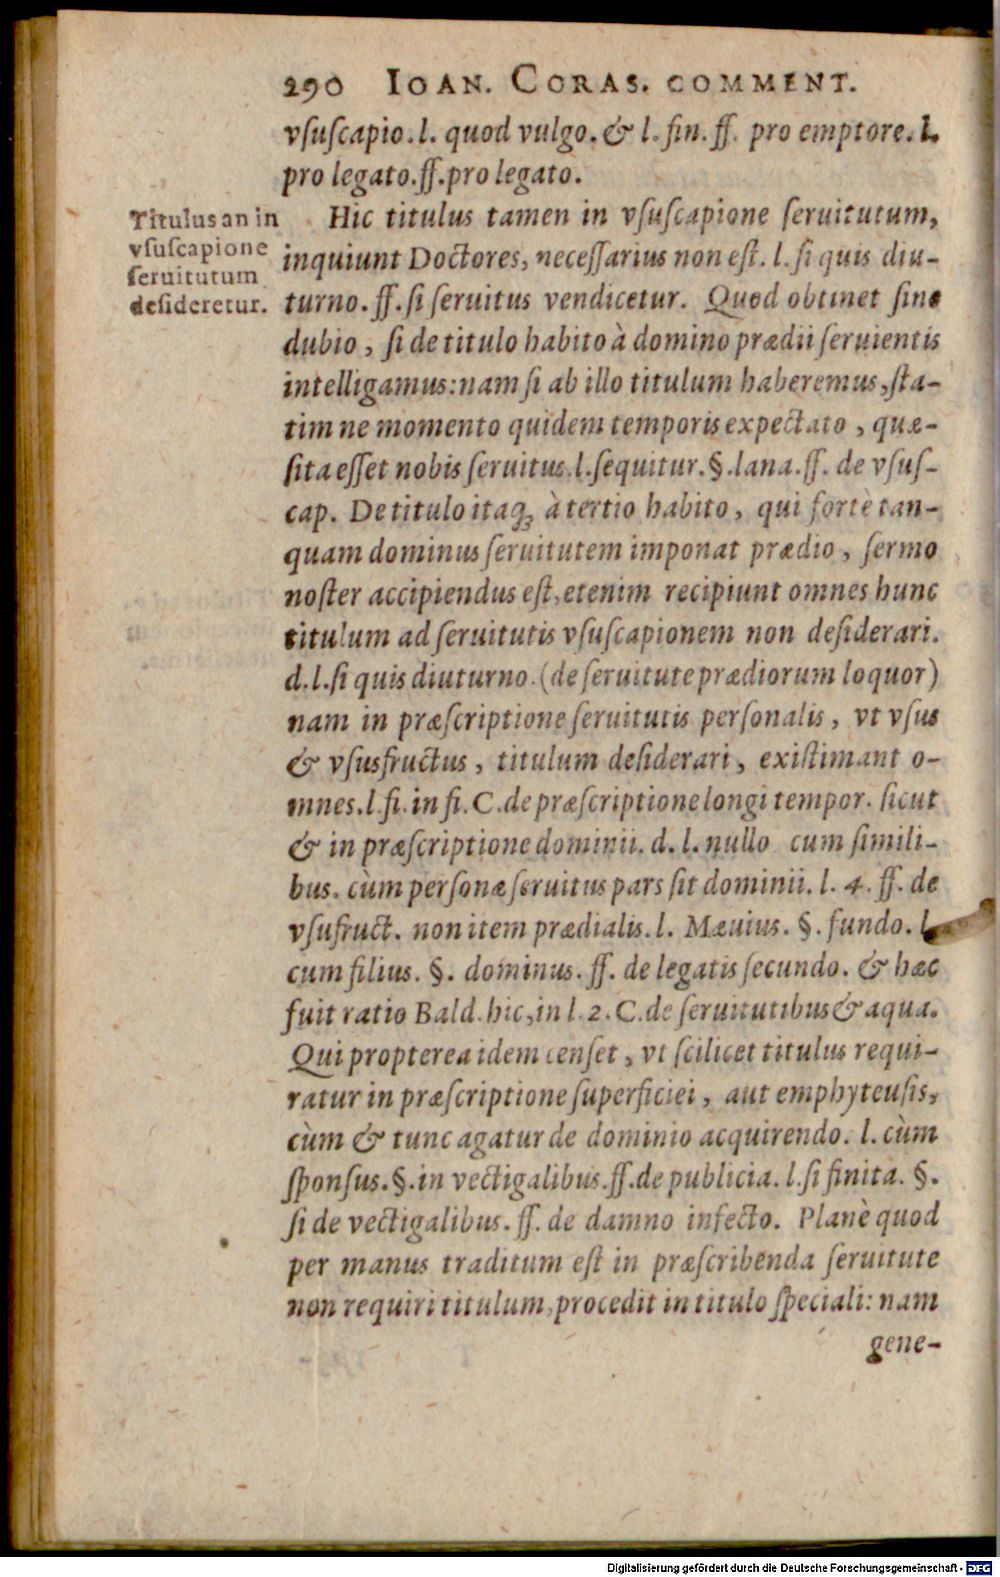 290 IOAN. CORAS. COMMENT.
vſuſcapio. l. quod vulgo. & l. fin. ff. pro emptore. l.
pro legato. ff. pro legato.
Titulus an in
vſuſcapione
ſeruitutum
deſideretur.
Hic titulus tamen in vſuſcapione ſeruitutum,
inquiunt Doctores, neceſſarius non eſt. l. ſi quis diu-
turno. ff. ſi ſeruitus vendicetur. Quod obtinet ſine
dubio, ſi de titulo habito à domino prædii ſeruientis
intelligamus: nam ſi ab illo titulum haberemus, ſta-
tim ne momento quidem temporis expectato, quæ-
ſita eſſet nobis ſeruitus. l. ſequitur. §. lana. ff. de vſuſ-
cap. De titulo itaq; à tertio habito, qui fortè tan-
quam dominus ſeruitutem imponat prædio, ſermo
noſter accipiendus eſt, etenim recipiunt omnes hunc
titulum ad ſeruitutis vſuſcapionem non deſiderari.
d. l. ſi quis diuturno. (de ſeruitute prædiorum loquor)
nam in præſcriptione ſeruitutis perſonalis, vt vſus
& vſusfructus, titulum deſiderari, exiſtimant o-
mnes. l. fi. in fi. C. de præſcriptione longi tempor. ſicut
& in præſcriptione dominii. d. l. nullo cum ſimili-
bus. cùm perſonæ ſeruitus pars ſit dominii. l. 4. ff. de
vſufruct. non item prædialis. l. Mæuius. §. fundo. l.
cum filius. §. dominus. ff. de legatis ſecundo. & hæc
fuit ratio Bald. hic, in l. 2. C. de ſeruitutibus & aqua.
Qui propterea idem cenſet, vt ſcilicet titulus requi-
ratur in præſcriptione ſuperficiei, aut emphyteuſis,
cùm & tunc agatur de dominio acquirendo. l. cùm
ſponſus. §. in vectigalibus. ff. de publicia. l. ſi finita. §.
ſi de vectigalibus. ff. de damno infecto. Planè quod
per manus traditum eſt in præſcribenda ſeruitute
non requiri titulum, procedit in titulo ſpeciali: nam
gene-
Digitalisierung gefördert durch die Deutsche Forschungsgemeinschaft - DFG